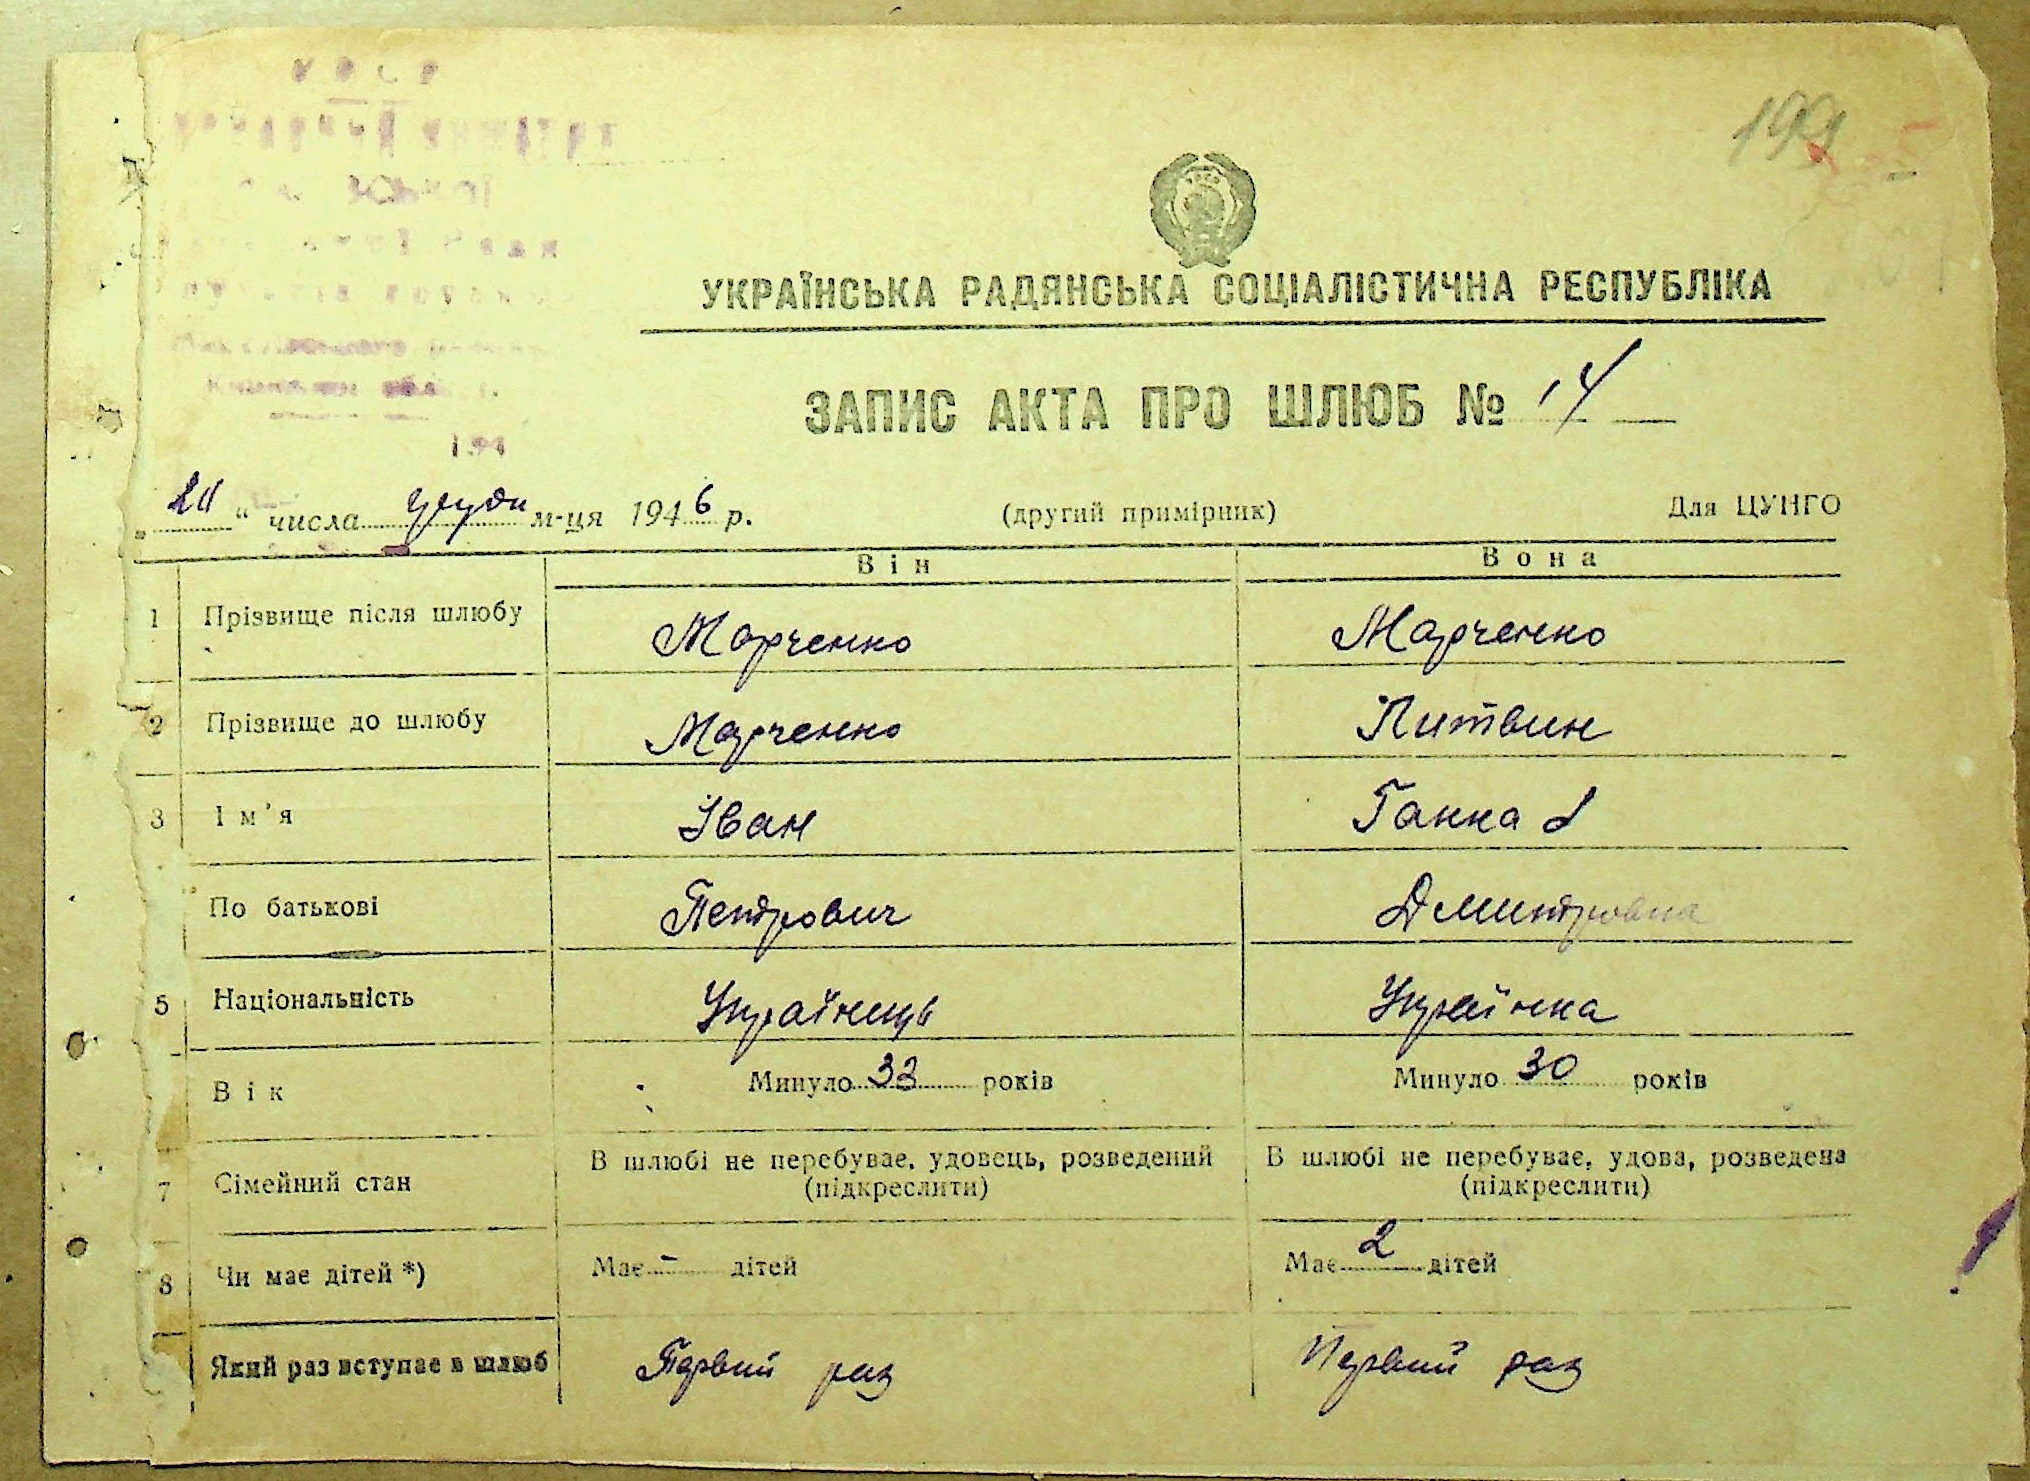 УРСР
194
УКРАЇНСЬКА РАДЯНСЬКА СОЦІАЛІСТИЧНА РЕСПУБЛІКА
ЗАПИС АКТА ПРО ШЛЮБ № 14
„ “ числа грудн м-ця 1946 р. (другий примірник) Для ЦУНГО
Він Вона
1 Прізвище після шлюбу Марченко Марченко
2 Прізвище до шлюбу Марченко Литвин
3 Ім'я Іван Ганна
По батькові Петрович Дмитровна
5 Національність Українець Українка
Вік Минуло 33 років Минуло 30 років
7 Сімейний стан В шлюбі не перебуває, удовець, розведений В шлюбі не перебуває, удова, розведена
(підкреслити) (підкреслити)
8 Чи має дітей *) Має - дітей Має 2 дітей
Який раз вступає в шлюб Первий раз Первий раз